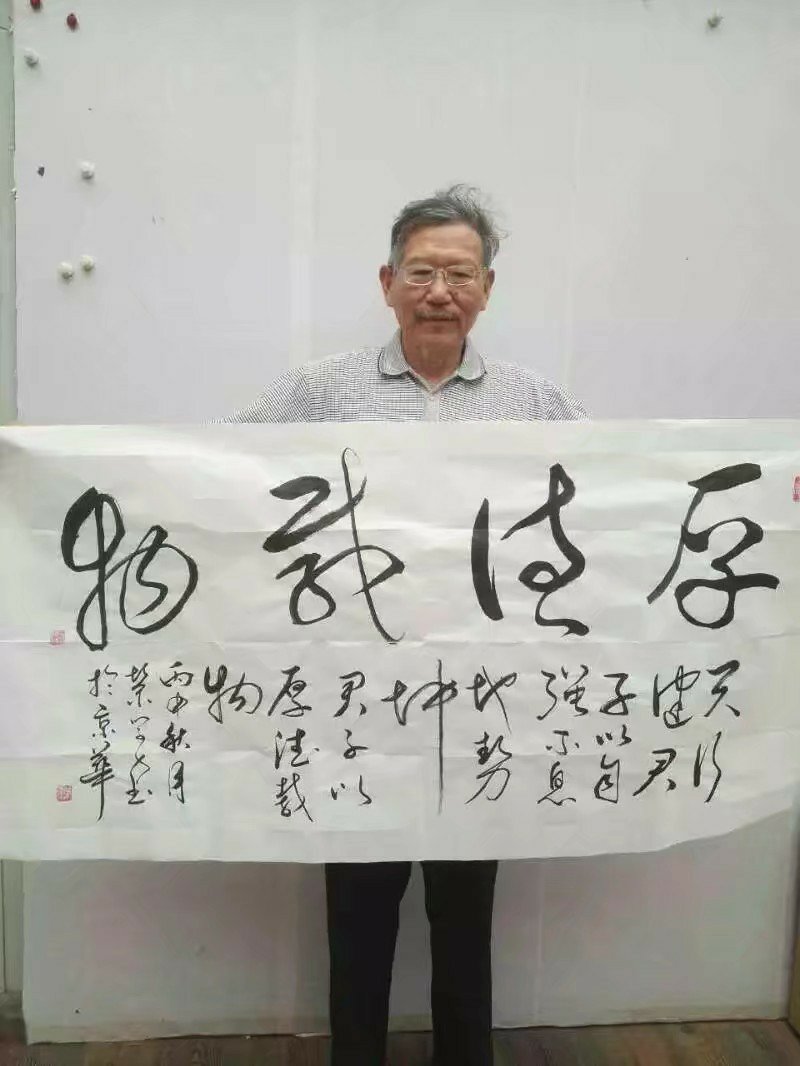 厚德載物
天行
健君
子以自
强不息
地势
坤
君子以
厚德載
物
丙申秋月
於京華